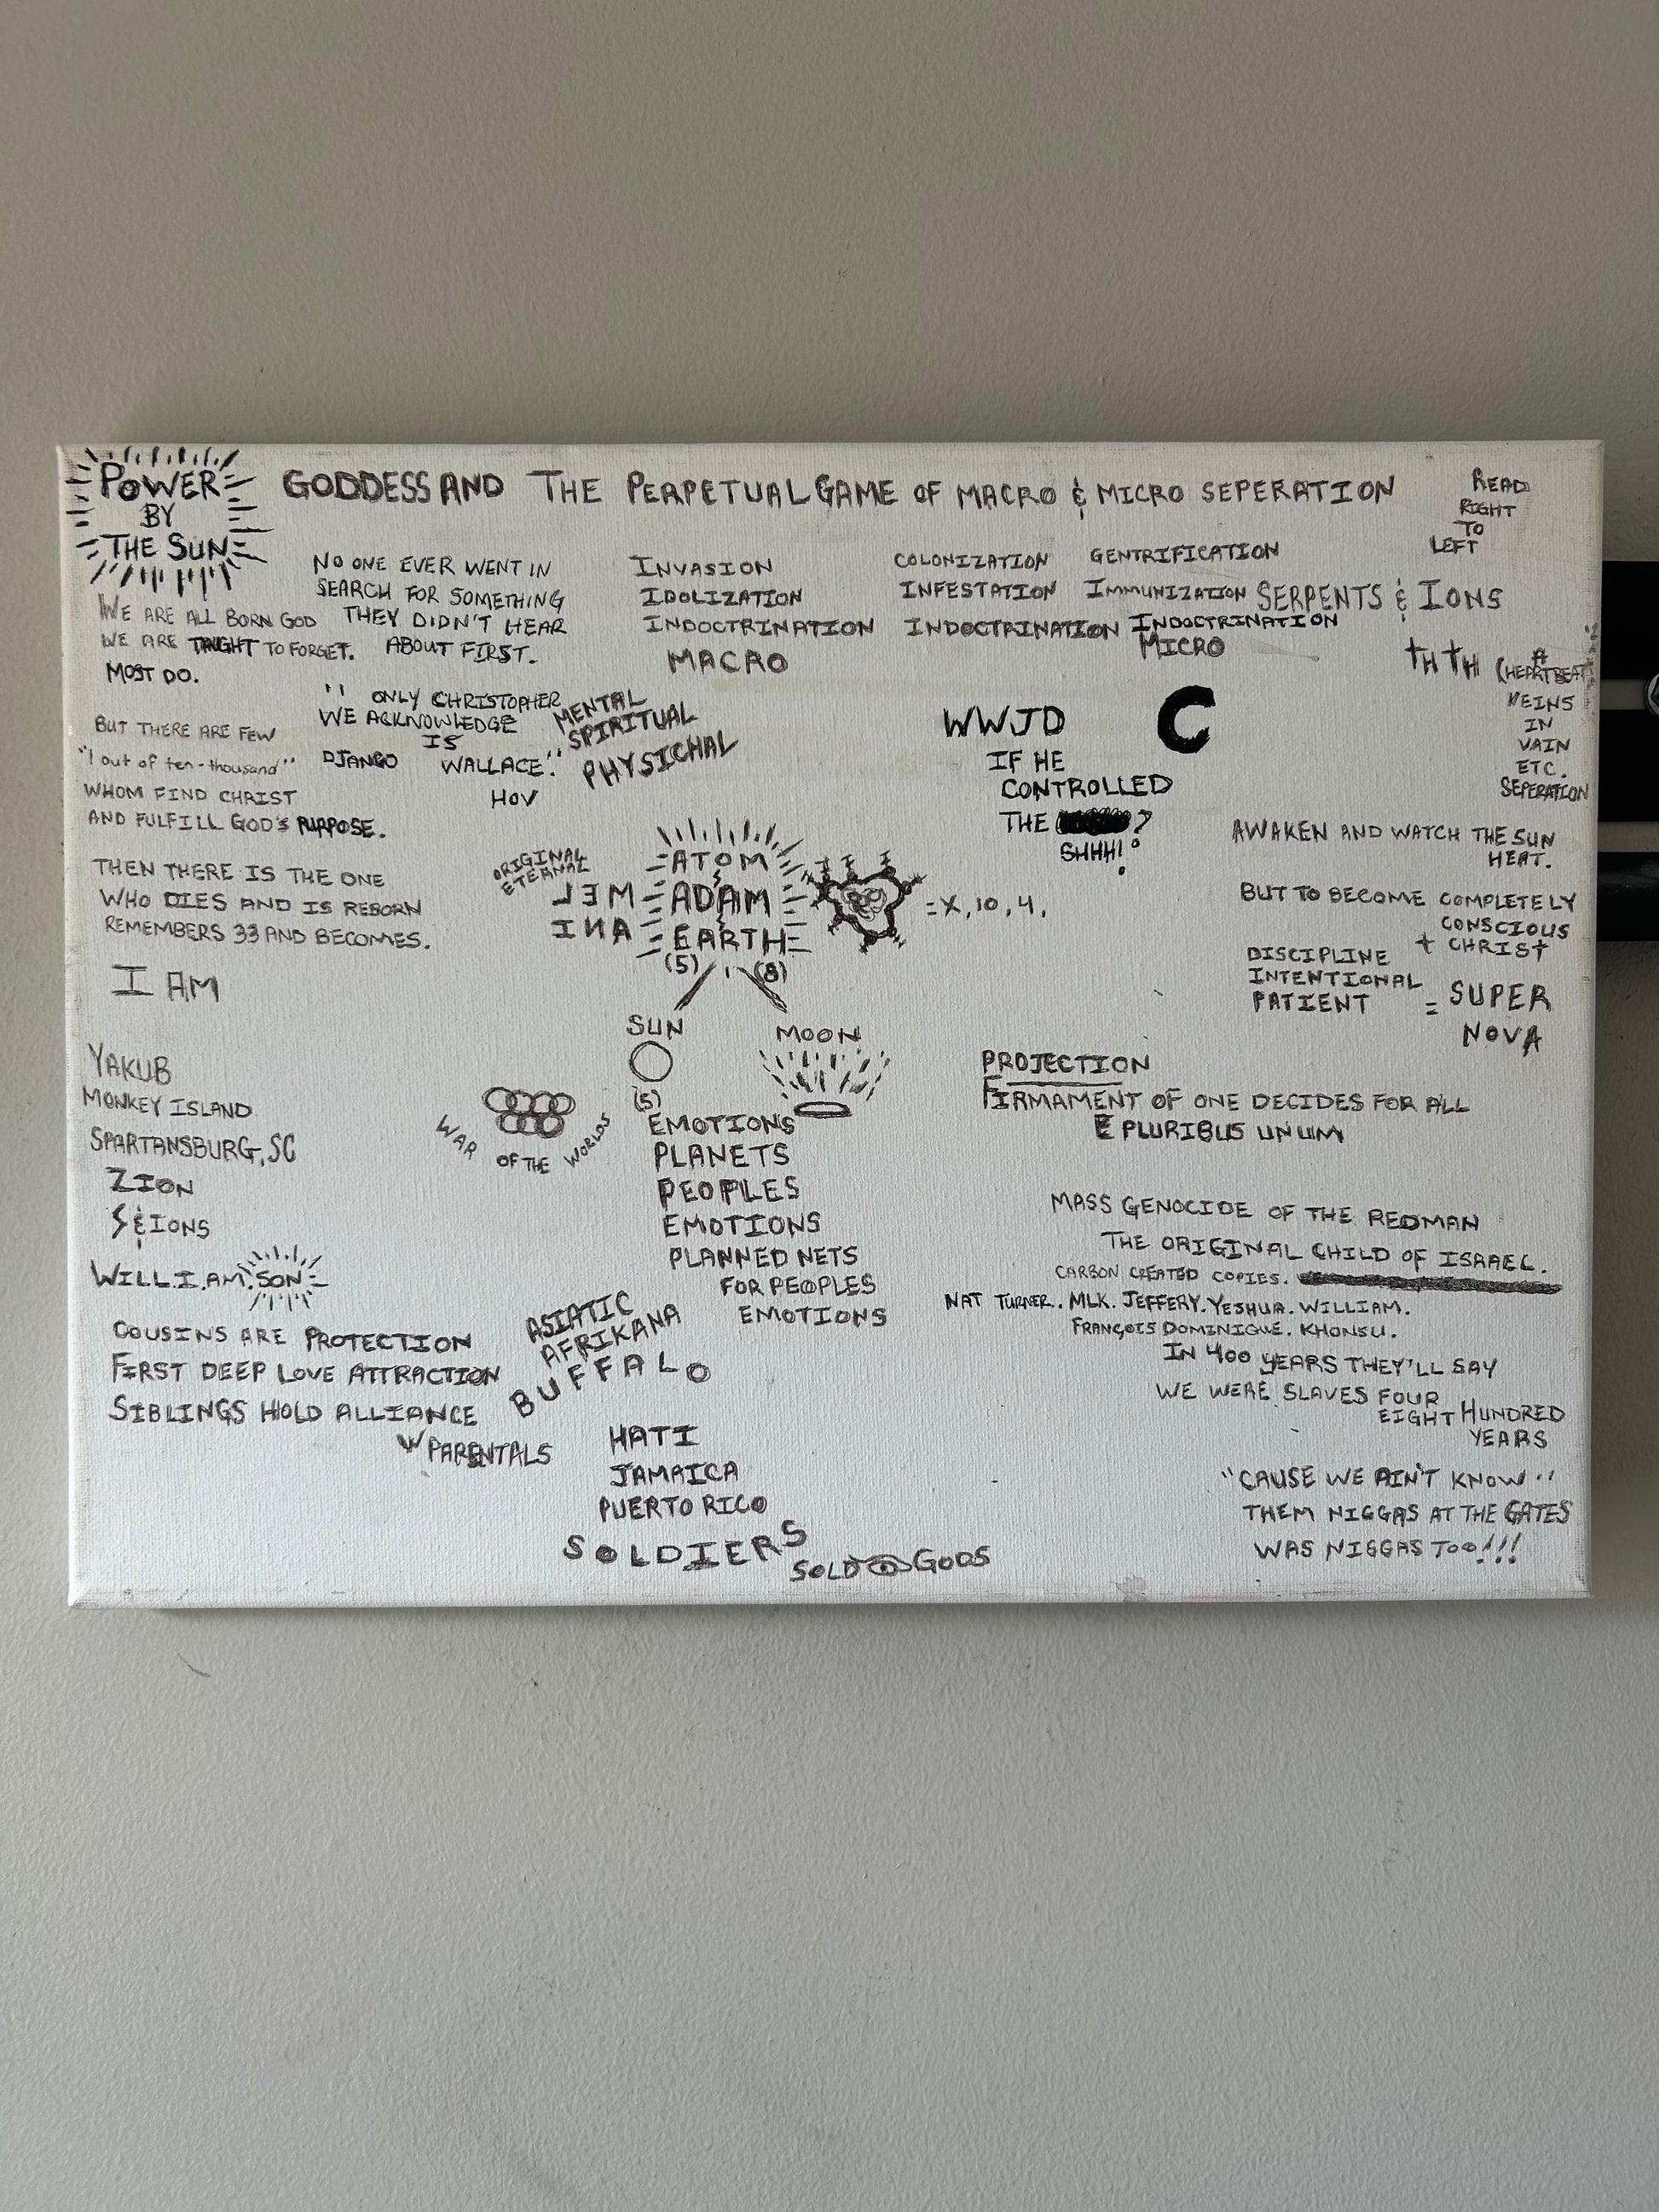 POWER
BY
THE SUN
GODDESS AND THE PERPETUAL GAME OF MACRO & MICRO SEPERATION
READ
RIGHT
TO
LEFT
NO ONE EVER WENT IN
SEARCH FOR SOMETHING
THEY DIDN'T HEAR
ABOUT FIRST.
INVASION
IDOLIZATION
INDOCTRINATION
MACRO
COLONIZATION
INFESTATION
INDOCTRINATION
GENTRIFICATION
IMMUNIZATION
INDOCTRINATION
MICRO
SERPENTS & IONS
WE ARE ALL BORN GOD
WE ARE TAUGHT TO FORGET.
MOST DO.
"ONLY CHRISTOPHER
WE ACKNOWLEDGE
IS
DJANGO WALLACE."
HOV
MENTAL
SPIRITUAL
PHYSICHAL
WWJD
IF HE
CONTROLLED
THE ?
SHHH!
C
tH tH (A
HEARTBEAT
VEINS
IN
VAIN
ETC.
SEPERATION
BUT THERE ARE FEW
"1 out of ten-thousand"
WHOM FIND CHRIST
AND FULFILL GOD'S PURPOSE.
THEN THERE IS THE ONE
WHO DIES AND IS REBORN
REMEMBERS 33 AND BECOMES.
I AM
ORIGINAL
ETERNAL
MEL
ANI
ATOM
ADAM
EARTH
(5) (8)
= X, 10, 4,
AWAKEN AND WATCH THE SUN
HEAT.
BUT TO BECOME COMPLETELY
CONSCIOUS
+ CHRIST
DISCIPLINE
INTENTIONAL
PATIENT = SUPER
NOVA
SUN
MOON
(5)
EMOTIONS
PLANETS
PEOPLES
EMOTIONS
PLANNED NETS
FOR PEOPLES
EMOTIONS
WAR OF THE WORLDS
PROJECTION
FIRMAMENT OF ONE DECIDES FOR ALL
E PLURIBUS UNUM
YAKUB
MONKEY ISLAND
SPARTANSBURG, SC
ZION
S & IONS
WILL.I.AM.SON
MASS GENOCIDE OF THE REDMAN
THE ORIGINAL CHILD OF ISRAEL.
CARBON CREATED COPIES.
NAT TURNER. MLK. JEFFERY. YESHUA. WILLIAM.
FRANÇOIS DOMINIQUE. KHONSU.
IN 400 YEARS THEY'LL SAY
WE WERE SLAVES FOUR
EIGHT HUNDRED
YEARS
COUSINS ARE PROTECTION
FIRST DEEP LOVE ATTRACTION
SIBLINGS HOLD ALLIANCE
W PARENTALS
ASIATIC
AFRIKANA
BUFFALO
HATI
JAMAICA
PUERTO RICO
SOLDIERS
SOLD GODS
"CAUSE WE AIN'T KNOW"
THEM NIGGAS AT THE GATES
WAS NIGGAS TOO!!!